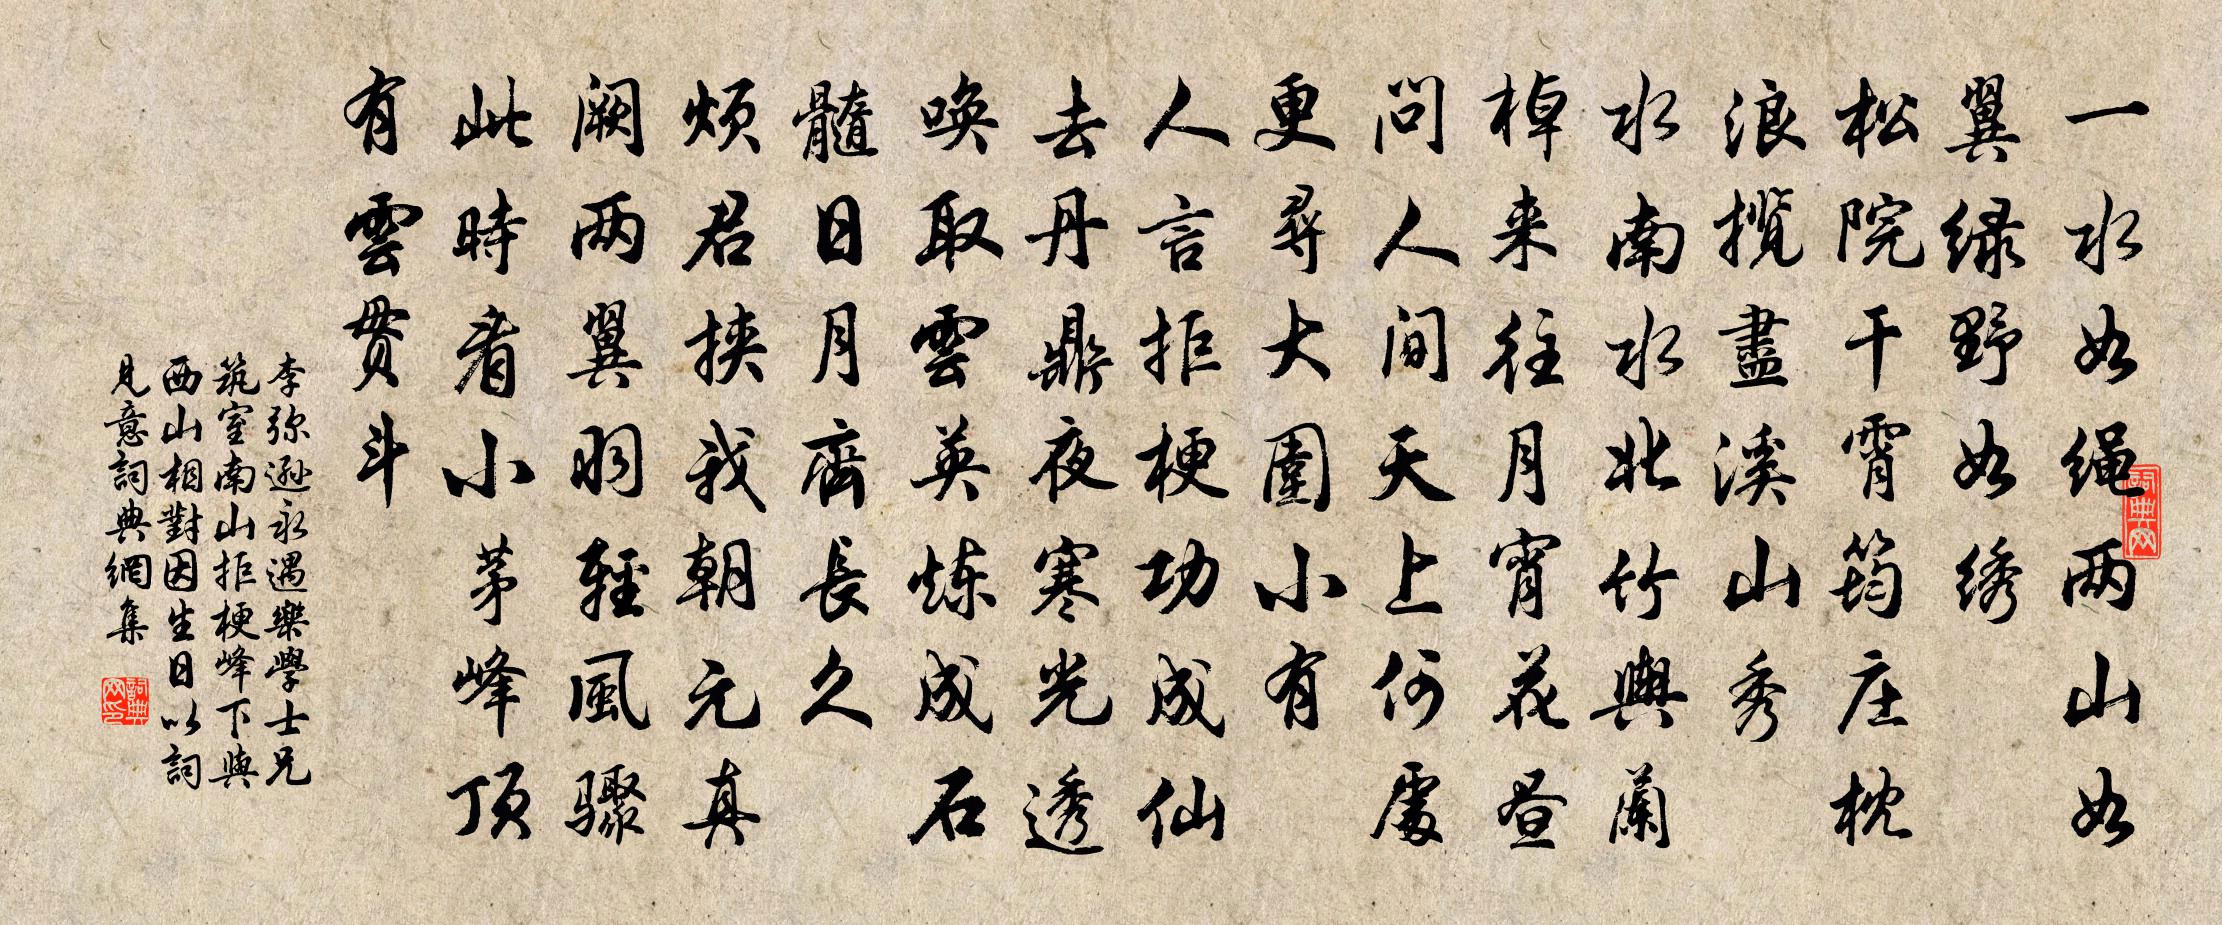 一水如绳两山如
翼绿野如绣
松院干霄筠庄枕
浪揽盡溪山秀
水南水北竹輿蘭
棹来往月宵花昼
问人间天上何處
更尋大圍小有
人言拒梗功成仙
去丹鼎夜寒光透
唤取雲英炼成石
髓日月齊長久
烦君挟我朝元真
阙两翼羽輕風骤
此時看小茅峰顶
有雲贯斗
李弥逊永遇樂學士兄
筑室南山拒梗峰下與
西山相對因生日以詞
見意詞典網集
詞典网
詞典网印